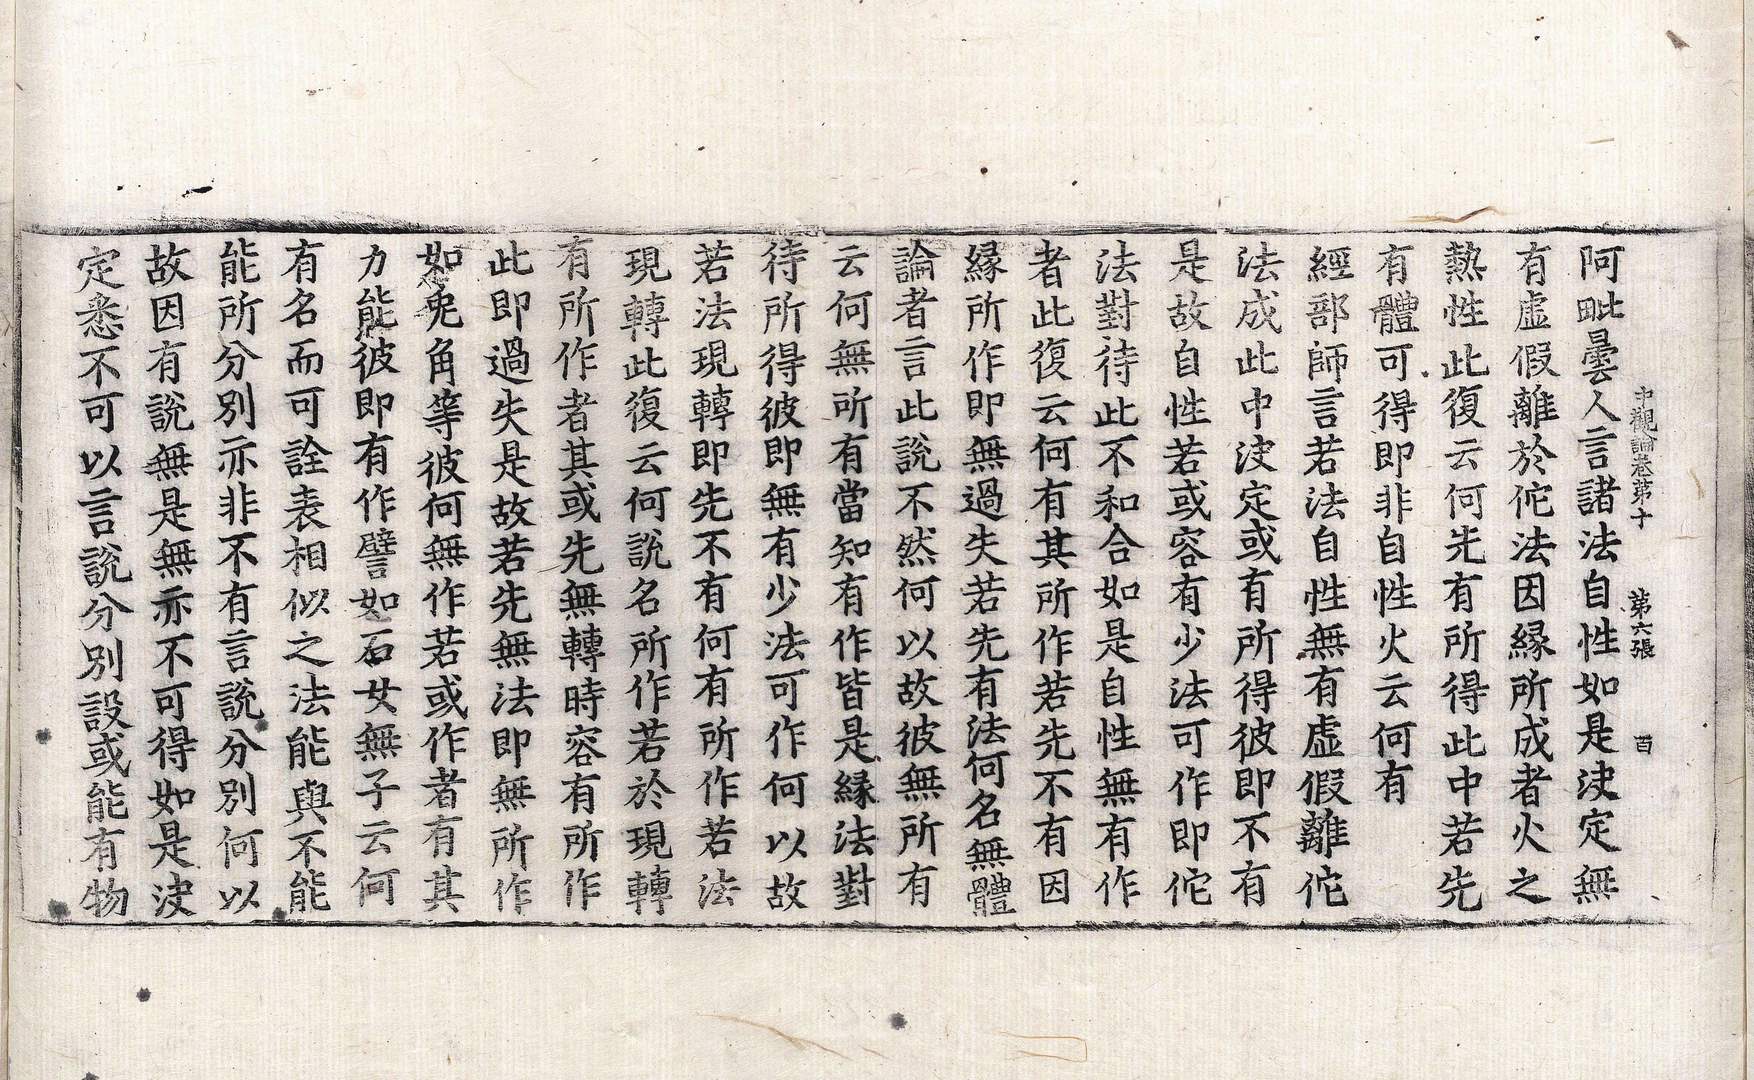 中觀論卷第十　第六張　酉
阿毗曇人言諸法自性如是決定無
有虛假離於佗法因縁所成者火之
熱性此復云何先有所得此中若先
有體可得即非自性火云何有
經部師言若法自性無有虛假離佗
法成此中決定或有所得彼即不有
是故自性若或容有少法可作即佗
法對待此不和合如是自性無有作
者此復云何有其所作若先不有因
縁所作即無過失若先有法何名無體
論者言此說不然何以故彼無所有
云何無所有當知有作皆是縁法對
待所得彼即無有少法可作何以故
若法現轉即先不有何有所作若法
現轉此復云何說名所作若於現轉
有所作者其或先無轉時容有所作
此即過失是故若先無法即無所作
如兎角等彼何無作若或作者有其
力能彼即有作譬如石女無子云何
有名而可詮表相似之法能與不能
能所分別亦非不有言說分別何以
故因有說無是無亦不可得如是決
定悉不可以言說分別設或能有物